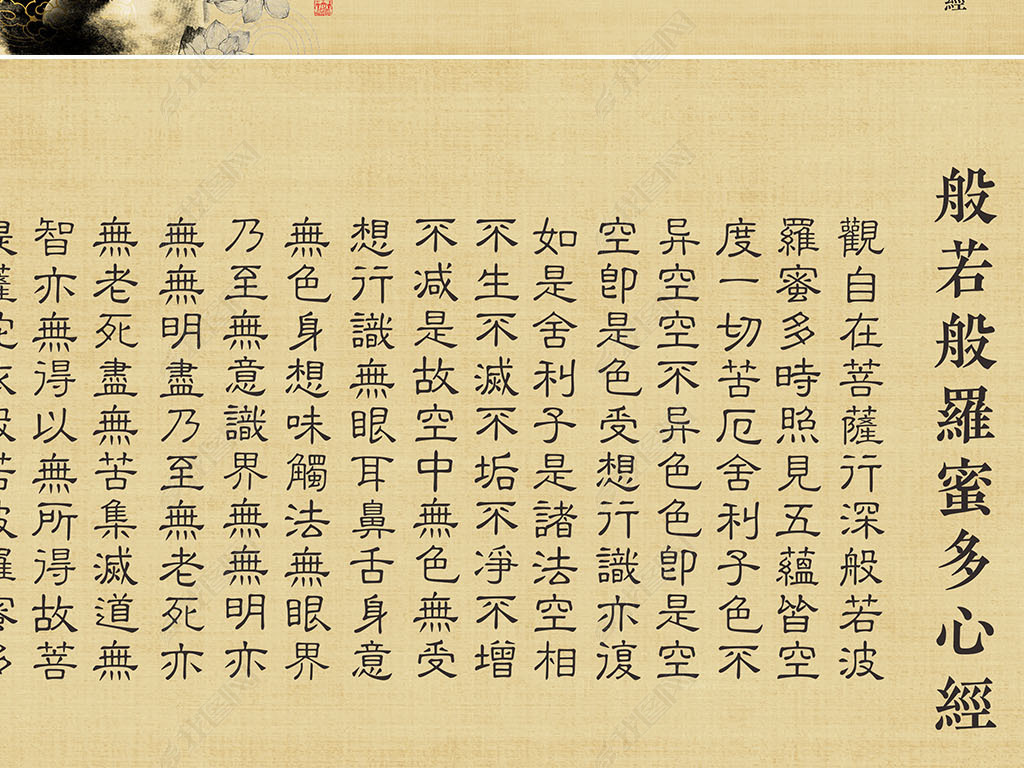 般若般羅蜜多心經
觀自在菩薩行深般若波
羅蜜多時照見五蘊皆空
度一切苦厄舍利子色不
异空空不异色色即是空
空即是色受想行識亦復
如是舍利子是諸法空相
不生不滅不垢不凈不增
不減是故空中無色無受
想行識無眼耳鼻舌身意
無色身想味觸法無眼界
乃至無意識界無無明亦
無無明盡乃至無老死亦
無老死盡無苦集滅道無
智亦無得以無所得故菩